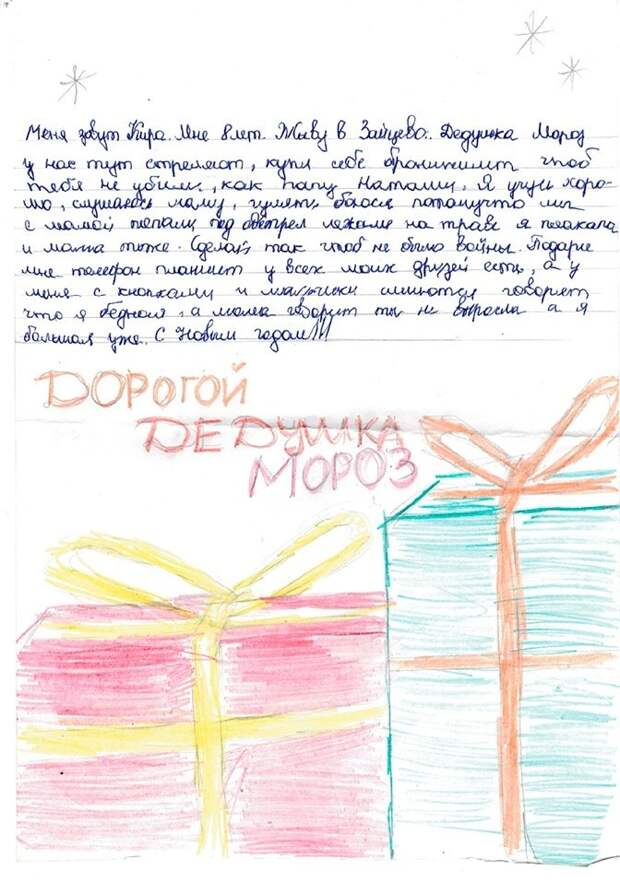 Меня зовут Кира. Мне 8 лет. Живу в Зайцево. Дедушка Мороз
у нас тут стреляют, купи себе бронижилет чтоб
тебя не убили, как папу Наташи. Я учусь хоро-
шо, слушаюсь маму, гулять боюся потомучто мы
с мамой попали под обстрел лежали на траве я плакала
и мама тоже. Сделай так чтоб не было войны. Подари
мне телефон планшет у всех моих друзей есть, а у
меня с кнопками и мальчики смеются говорят
что я бедная, а мама говорит ты не выросла а я
большая уже. С Новым годом!!!
ДОРОГОЙ
ДЕДУШКА
МОРОЗ